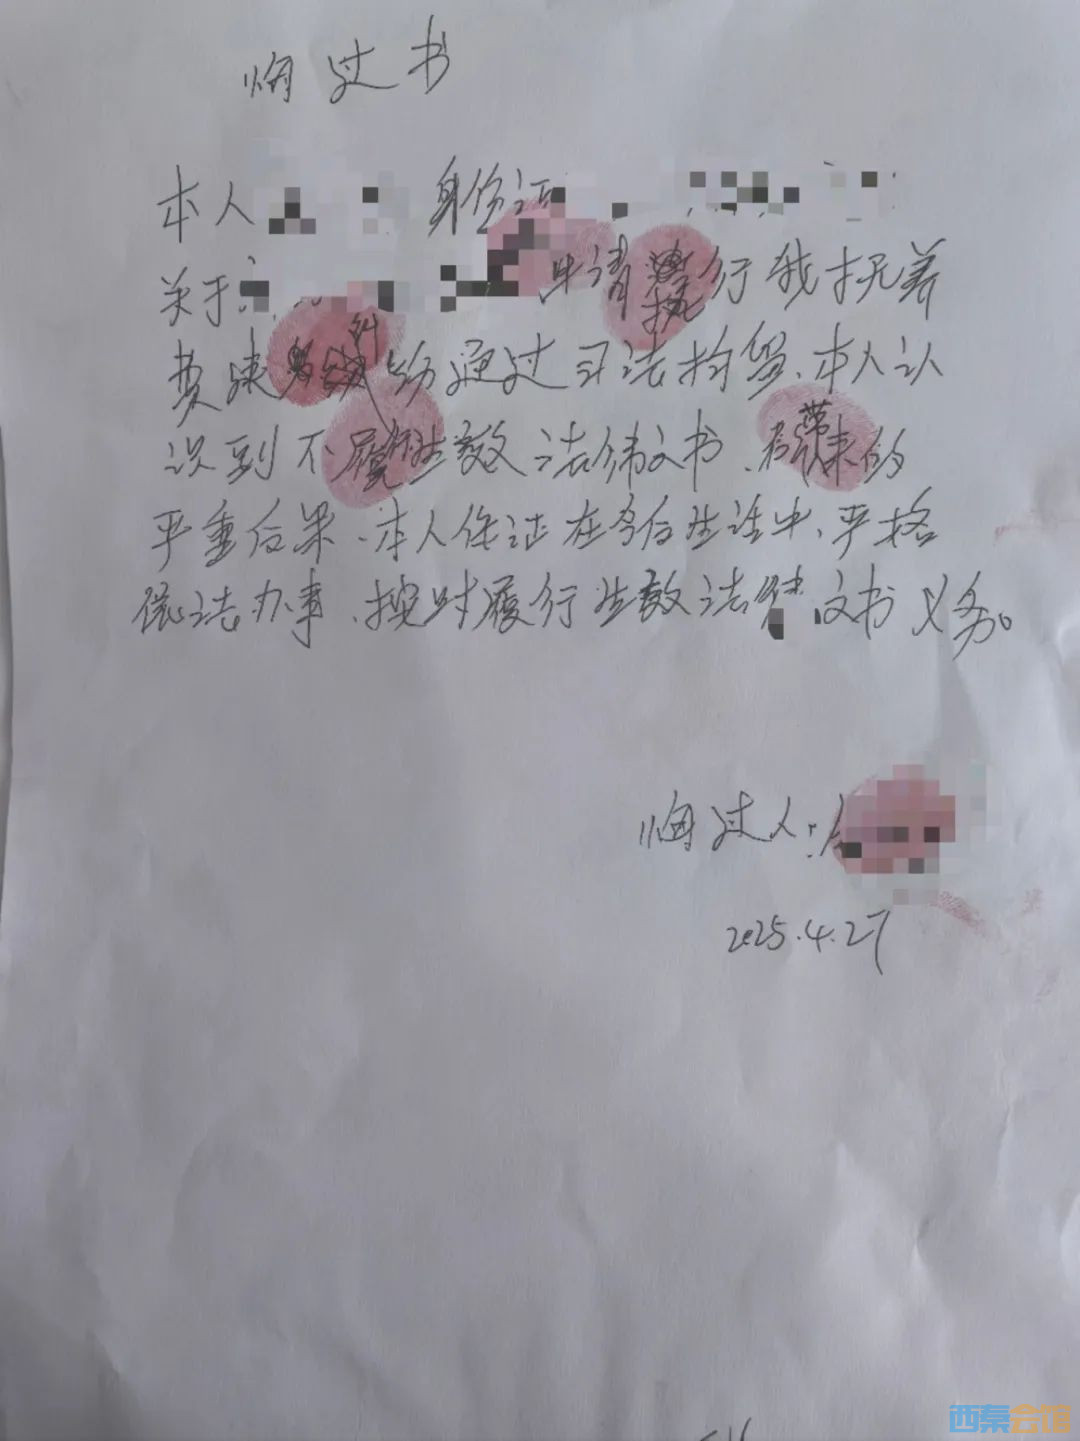 悔过书
本人 身份证
关于 申请执行我抚养
费 纠纷通过司法拘留、本人认
识到不履行生效法律文书、所带来的
严重后果、本人保证在今后生活中、严格
依法办事、按时履行生效法律文书义务。
悔过人:
2025.4.27
西秦会馆